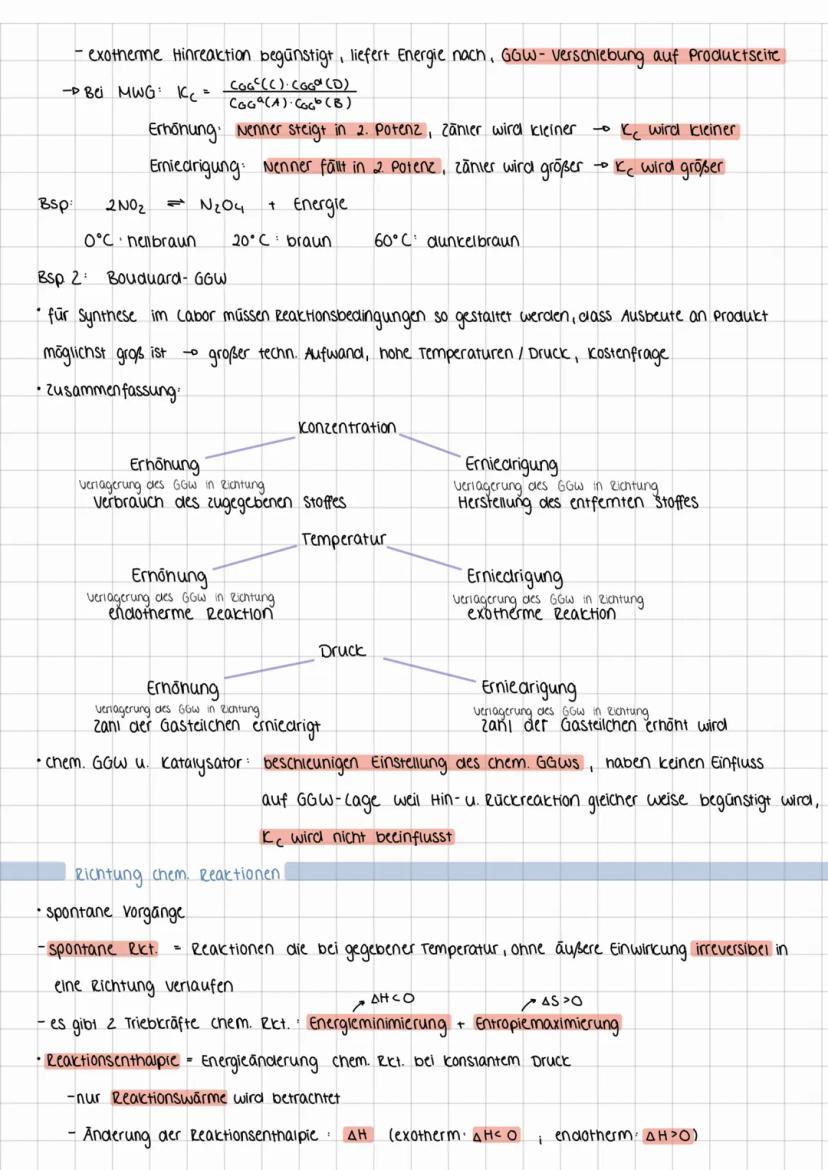 - exotherme Hinreaktion begünstigt, liefert Energie nach, GGW-Verschiebung auf Produktseite
→ Bei MWG: Kc = cGGᶜ(C)·cGGᵈ(D) / cGGᵃ(A)·cGGᵇ(B)
Erhöhung: Nenner steigt in 2. Potenz, Zähler wird kleiner → Kc wird kleiner
Erniedrigung: Nenner fällt in 2. Potenz, Zähler wird größer → Kc wird größer
Bsp: 2NO₂ ⇌ N₂O₄ + Energie
0°C: hellbraun 20°C: braun 60°C: dunkelbraun
Bsp. 2: Bouduard-GGW
• für Synthese im Labor müssen Reaktionsbedingungen so gestaltet werden, dass Ausbeute an Produkt
möglichst groß ist → großer techn. Aufwand, hohe Temperaturen / Druck, Kostenfrage
• Zusammenfassung:
Konzentration
Erhöhung Erniedrigung
Verlagerung des GGW in Richtung Verlagerung des GGW in Richtung
Verbrauch des zugegebenen Stoffes Herstellung des entfernten Stoffes
Temperatur
Erhöhung Erniedrigung
Verlagerung des GGW in Richtung Verlagerung des GGW in Richtung
endotherme Reaktion exotherme Reaktion
Druck
Erhöhung Erniedrigung
Verlagerung des GGW in Richtung Verlagerung des GGW in Richtung
Zahl der Gasteilchen erniedrigt Zahl der Gasteilchen erhöht wird
• chem. GGW u. Katalysator: beschleunigen Einstellung des chem. GGWs, haben keinen Einfluss
auf GGW-Lage weil Hin- u. Rückreaktion gleicher weise begünstigt wird,
Kc wird nicht beeinflusst
Richtung chem. Reaktionen
• spontane Vorgänge
- spontane Rkt. = Reaktionen die bei gegebener Temperatur, ohne äußere Einwirkung irreversibel in
eine Richtung verlaufen
↗ ΔH<0 ↗ ΔS>0
- es gibt 2 Triebkräfte chem. Rkt.: Energieminimierung + Entropiemaximierung
• Reaktionsenthalpie = Energieänderung chem. Rkt. bei konstantem Druck
- nur Reaktionswärme wird betrachtet
- Änderung der Reaktionsenthalpie: ΔH (exotherm: ΔH<0 ; endotherm: ΔH>0)